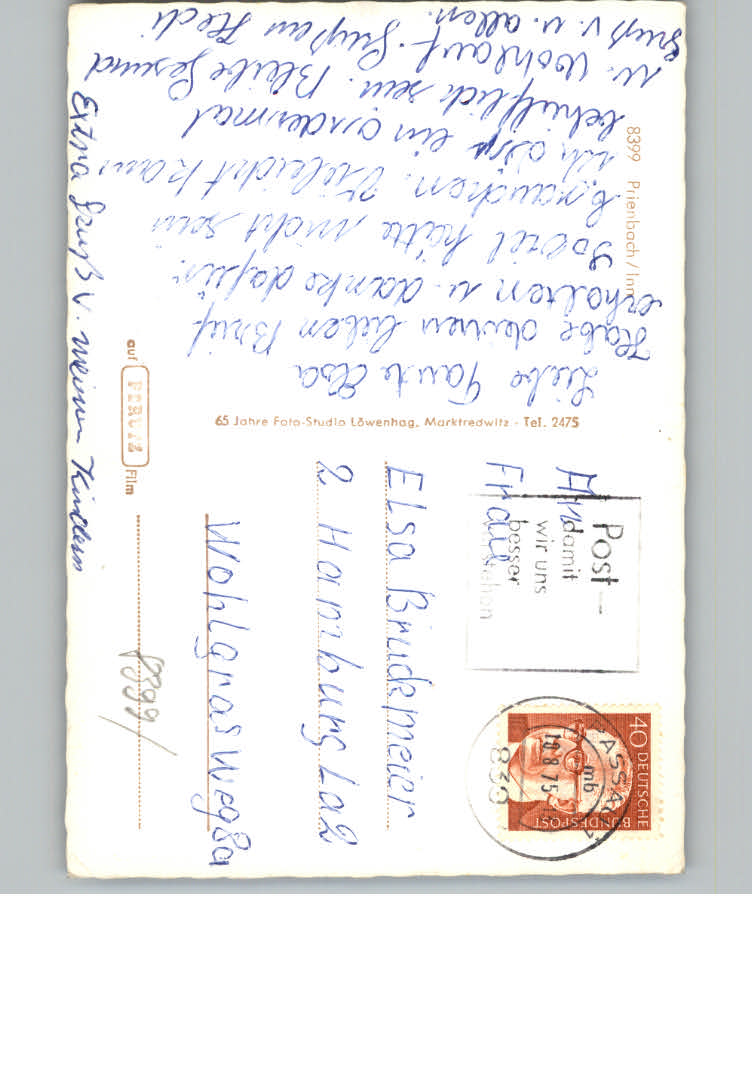 8399 Prienbach / Inn
Liebe Tante Elsa
Habe deinen lieben Brief
erhalten u. danke dafür.
Soviel hätte nicht sein
brauchen. Vieleicht kann
ich dir ein andermal
behilflich sein. Bleibe Gesund
u. Wohlauf. Grüße an Hedi
Gruß v. u. allen.
Extra Gruß v. meinen Kindern
65 Jahre Foto-Studio Löwenhag, Marktredwitz - Tel. 2475
auf PERUTZ Film
An
Frau
Elsa Brudermeier
2 Hamburg La2
Wohlgrasweg 8a
8399/
Post
damit
wir uns
besser
verstehen
PASSAU 1
mb
18.8.75
839
40 DEUTSCHE
BUNDESPOST